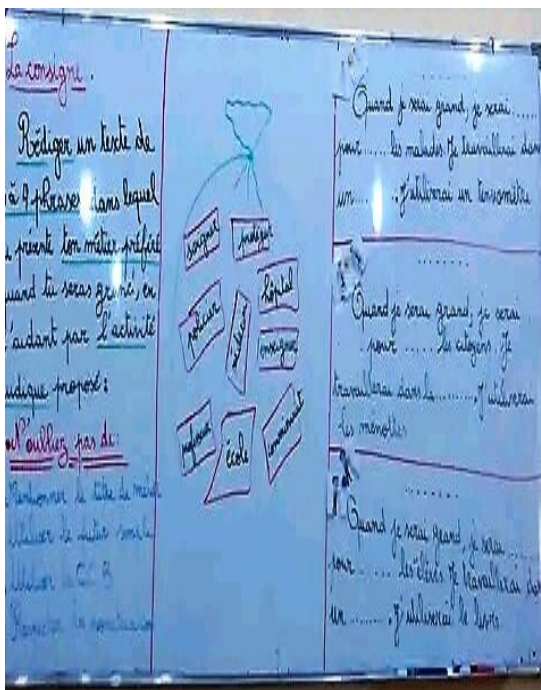 La consigne.
Rédiger un texte de
à 9 phrases dans lequel
présente ton métier préféré
quand tu seras grand, en
t'aidant par l'activité
ludique proposé :
N'oubliez pas de :
Mentionner le titre de métier
Utiliser le futur simple
Utiliser le C.C.B
Respecter la ponctuation
soigner
protéger
hôpital
policier
médecin
enseigner
professeur
école
commissariat
........
Quand je serai grand, je serai......
pour...... les malades. Je travaillerai dans
un........ J'utiliserai un tensiomètre
........
Quand je serai grand, je serai
pour........ les citoyens. Je
travaillerai dans le......... J'utiliserai
les menottes
.......
Quand je serai grand, je serai....
pour........ les élèves. Je travaillerai dans
un......... J'utiliserai le livre